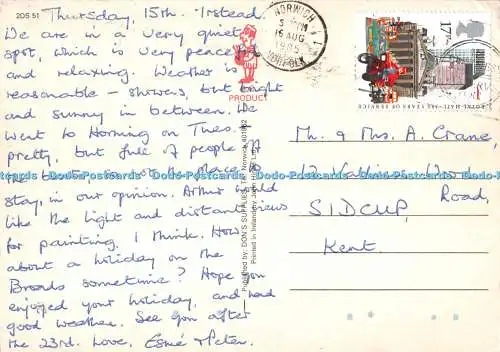 205 51
Thursday, 15th. Instead.
We are in a very quiet
spot, which is very peaceful
and relaxing. Weather is
reasonable - showers, but bright
and sunny in between. We
went to Horning on Tues.
pretty, but full of people &
place to
stay, in our opinion. Arthur would
like the light and distant views
for painting. I think. How
about a holiday on the
Broads sometime? Hope you
enjoyed your holiday, and had
good weather. See you after
the 23rd. Love, Esmé & Peter.
PRODUCT
Published by: DON'S SUPPLIES,
Printed in Ireland by John Hinde Ltd.
NORWICH
16 AUG
1985
NORFOLK
17
ROYAL MAIL 350 YEARS OF SERVICE
Mr. & Mrs. A. Crane,
Road,
SIDCUP,
Kent.
Dodo-Postcards Dodo-Postcards Dodo-Postcards Dodo-Postcards Dodo-Postcards